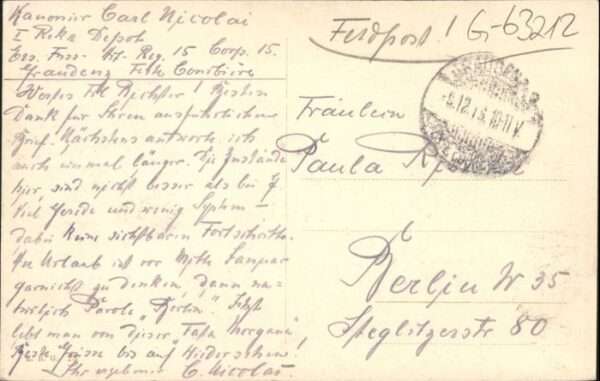 Kanonier Carl Nicolai
I Rekr. Depot
Ers. Fuss- Art. Reg. 15 Corp. 15.
Graudenz Feste Courbière
Feldpost! G-63212
Dank für Ihren ausführlichen
Brief. Nächstens antworte ich
auch einmal länger. Die Zustände
hier sind nicht besser als bei J.
Viel Gerede und wenig System –
dabei keine sichtbaren Fortschritte.
An Urlaub ist vor Mitte Januar
garnicht zu denken, dann na-
türlich Parole „Berlin". Jetzt
lebt man von dieser „Fata Morgana".
Beste Grüsse bis auf Wiedersehen!
Ihr ergebener C. Nicolai
Fräulein
Paula
Berlin W 35
Steglitzerstr 80